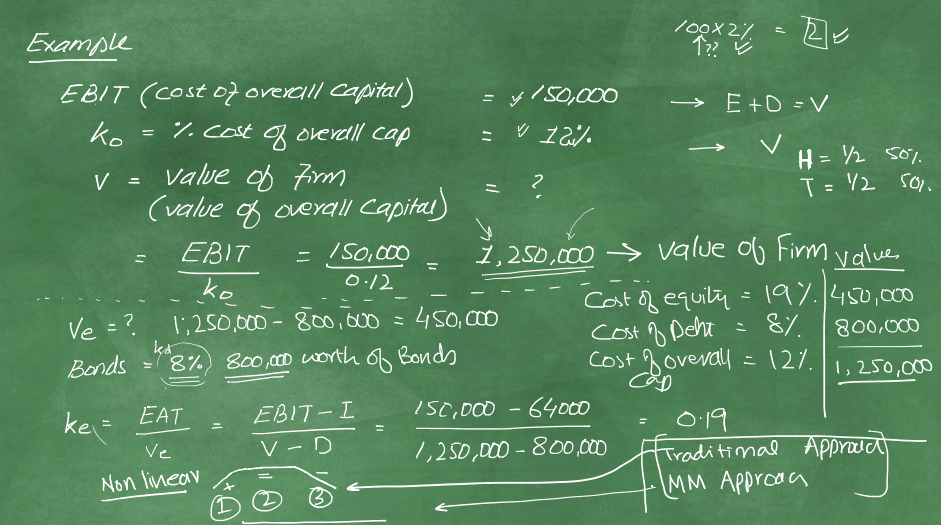 100 x 2% = 2
??
Example
EBIT (cost of overall capital) = 150,000 → E + D = V
ko = % cost of overall cap = 12% → V
H = 1/2 50%
T = 1/2 50%
V = value of firm = ?
(value of overall capital)
= EBIT / ko = 150,000 / 0.12 = 1,250,000 → value of Firm
Value
Cost of equity = 19% 450,000
Cost of Debt = 8% 800,000
Cost of overall Cap = 12% 1,250,000
Ve = ? 1,250,000 - 800,000 = 450,000
Bonds = kd 8% 800,000 worth of Bonds
ke = EAT / Ve = EBIT - I / V - D = 150,000 - 64000 / 1,250,000 - 800,000 = 0.19
Traditional Approach
MM Approach
Non linear + = -
1 2 3